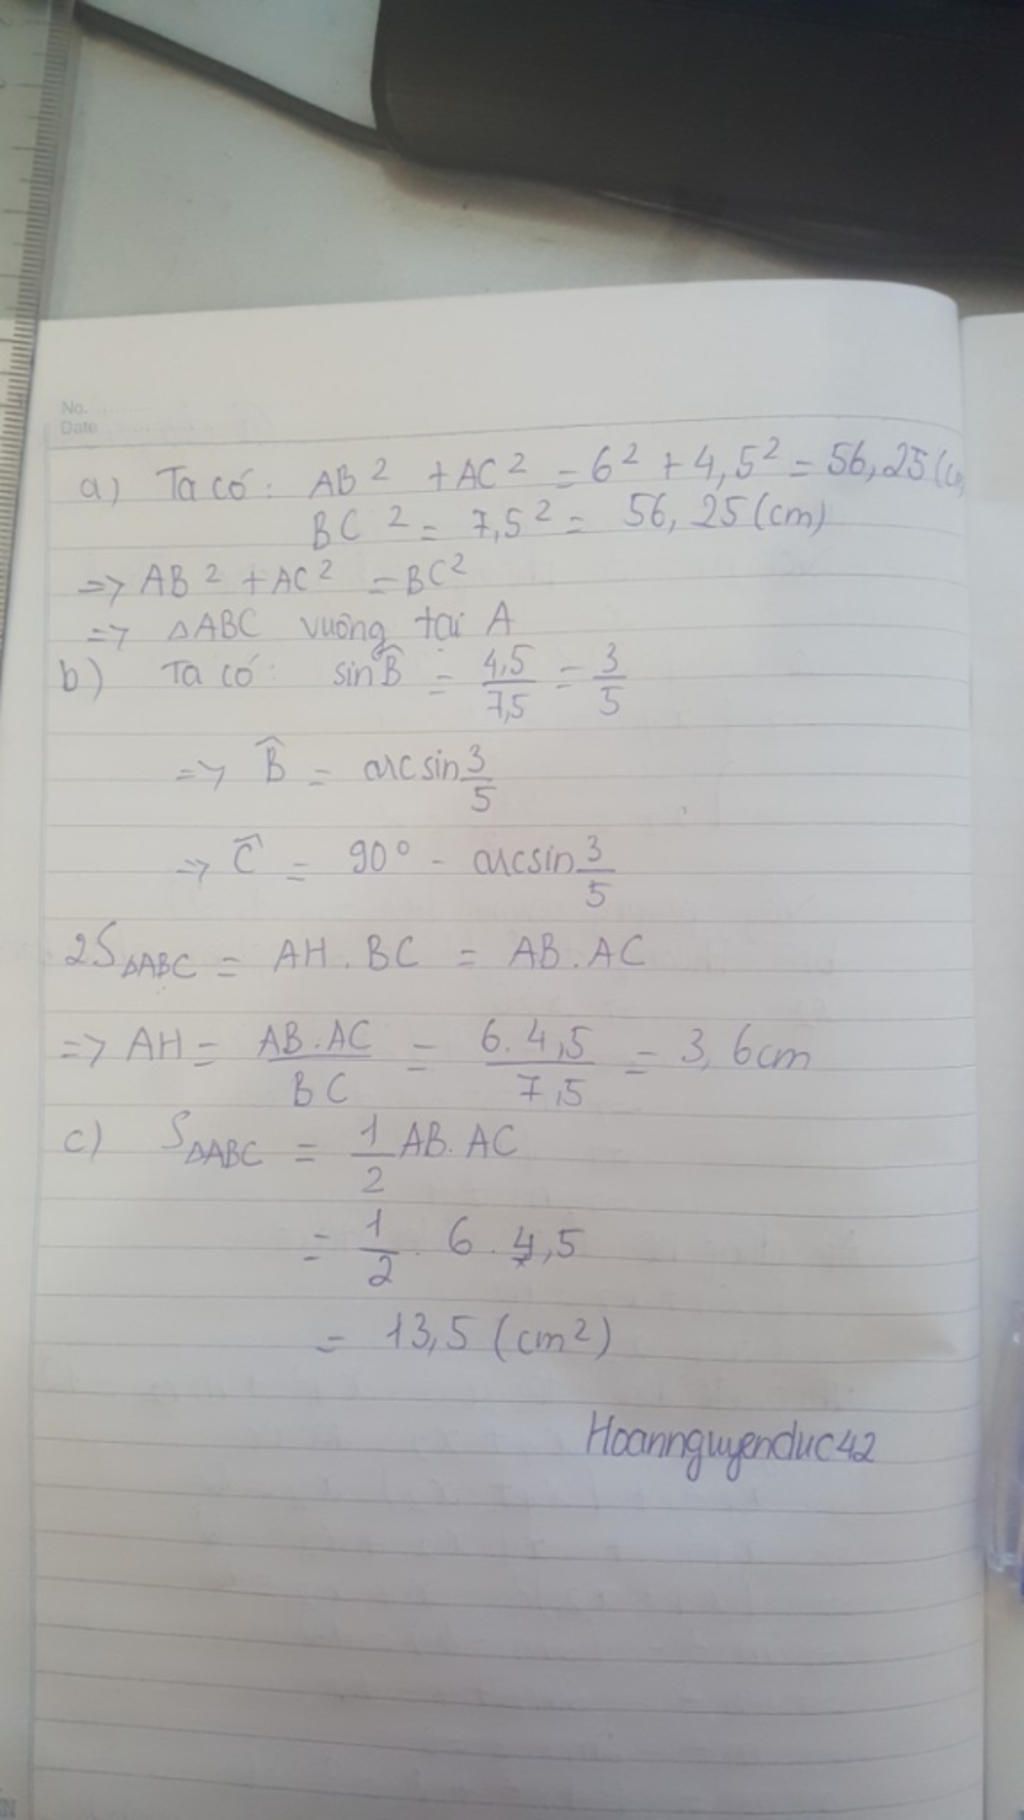 No.
Date
a) Ta có: AB² + AC² = 6² + 4,5² = 56,25 (c
BC² = 7,5² = 56,25 (cm)
=> AB² + AC² = BC²
=> ΔABC vuông tại A
b) Ta có: sin B̂ = 4,5/7,5 = 3/5
=> B̂ = arcsin 3/5
=> Ĉ = 90° - arcsin 3/5
2SΔABC = AH . BC = AB . AC
=> AH = AB.AC/BC = 6.4,5/7,5 = 3,6cm
c) SΔABC = 1/2 AB. AC
= 1/2 . 6 . 4,5
= 13,5 (cm²)
Hoannguyenduc42